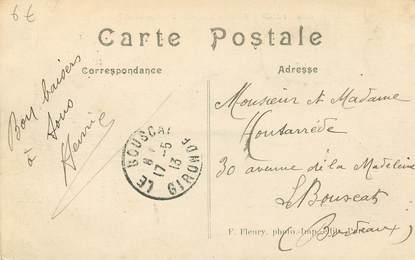 6€
Carte Postale
Correspondance
Adresse
Bons baisers
à tous
Henri
LE BOUSCAT
17 -5
13
GIRONDE
Monsieur et Madame
Hontarrède
30 avenue de la Madeleine
Le Bouscat
(Bordeaux)
F. Fleury, photo-Imp.